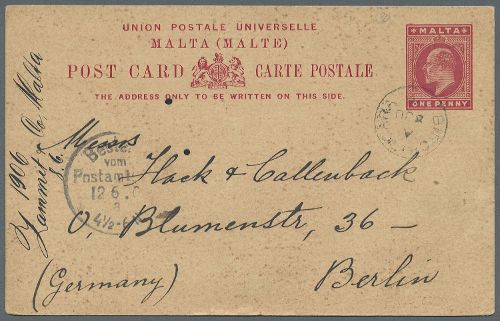 UNION POSTALE UNIVERSELLE
MALTA (MALTE)
POST CARD CARTE POSTALE
THE ADDRESS ONLY TO BE WRITTEN ON THIS SIDE.
MALTA
ONE PENNY
1906
Zammit & Co, Malta
Messrs
Bestellt
vom
Postamt
12 6
4½-6
Höck & Callenback
O, Blumenstr, 36 -
Berlin
(Germany)